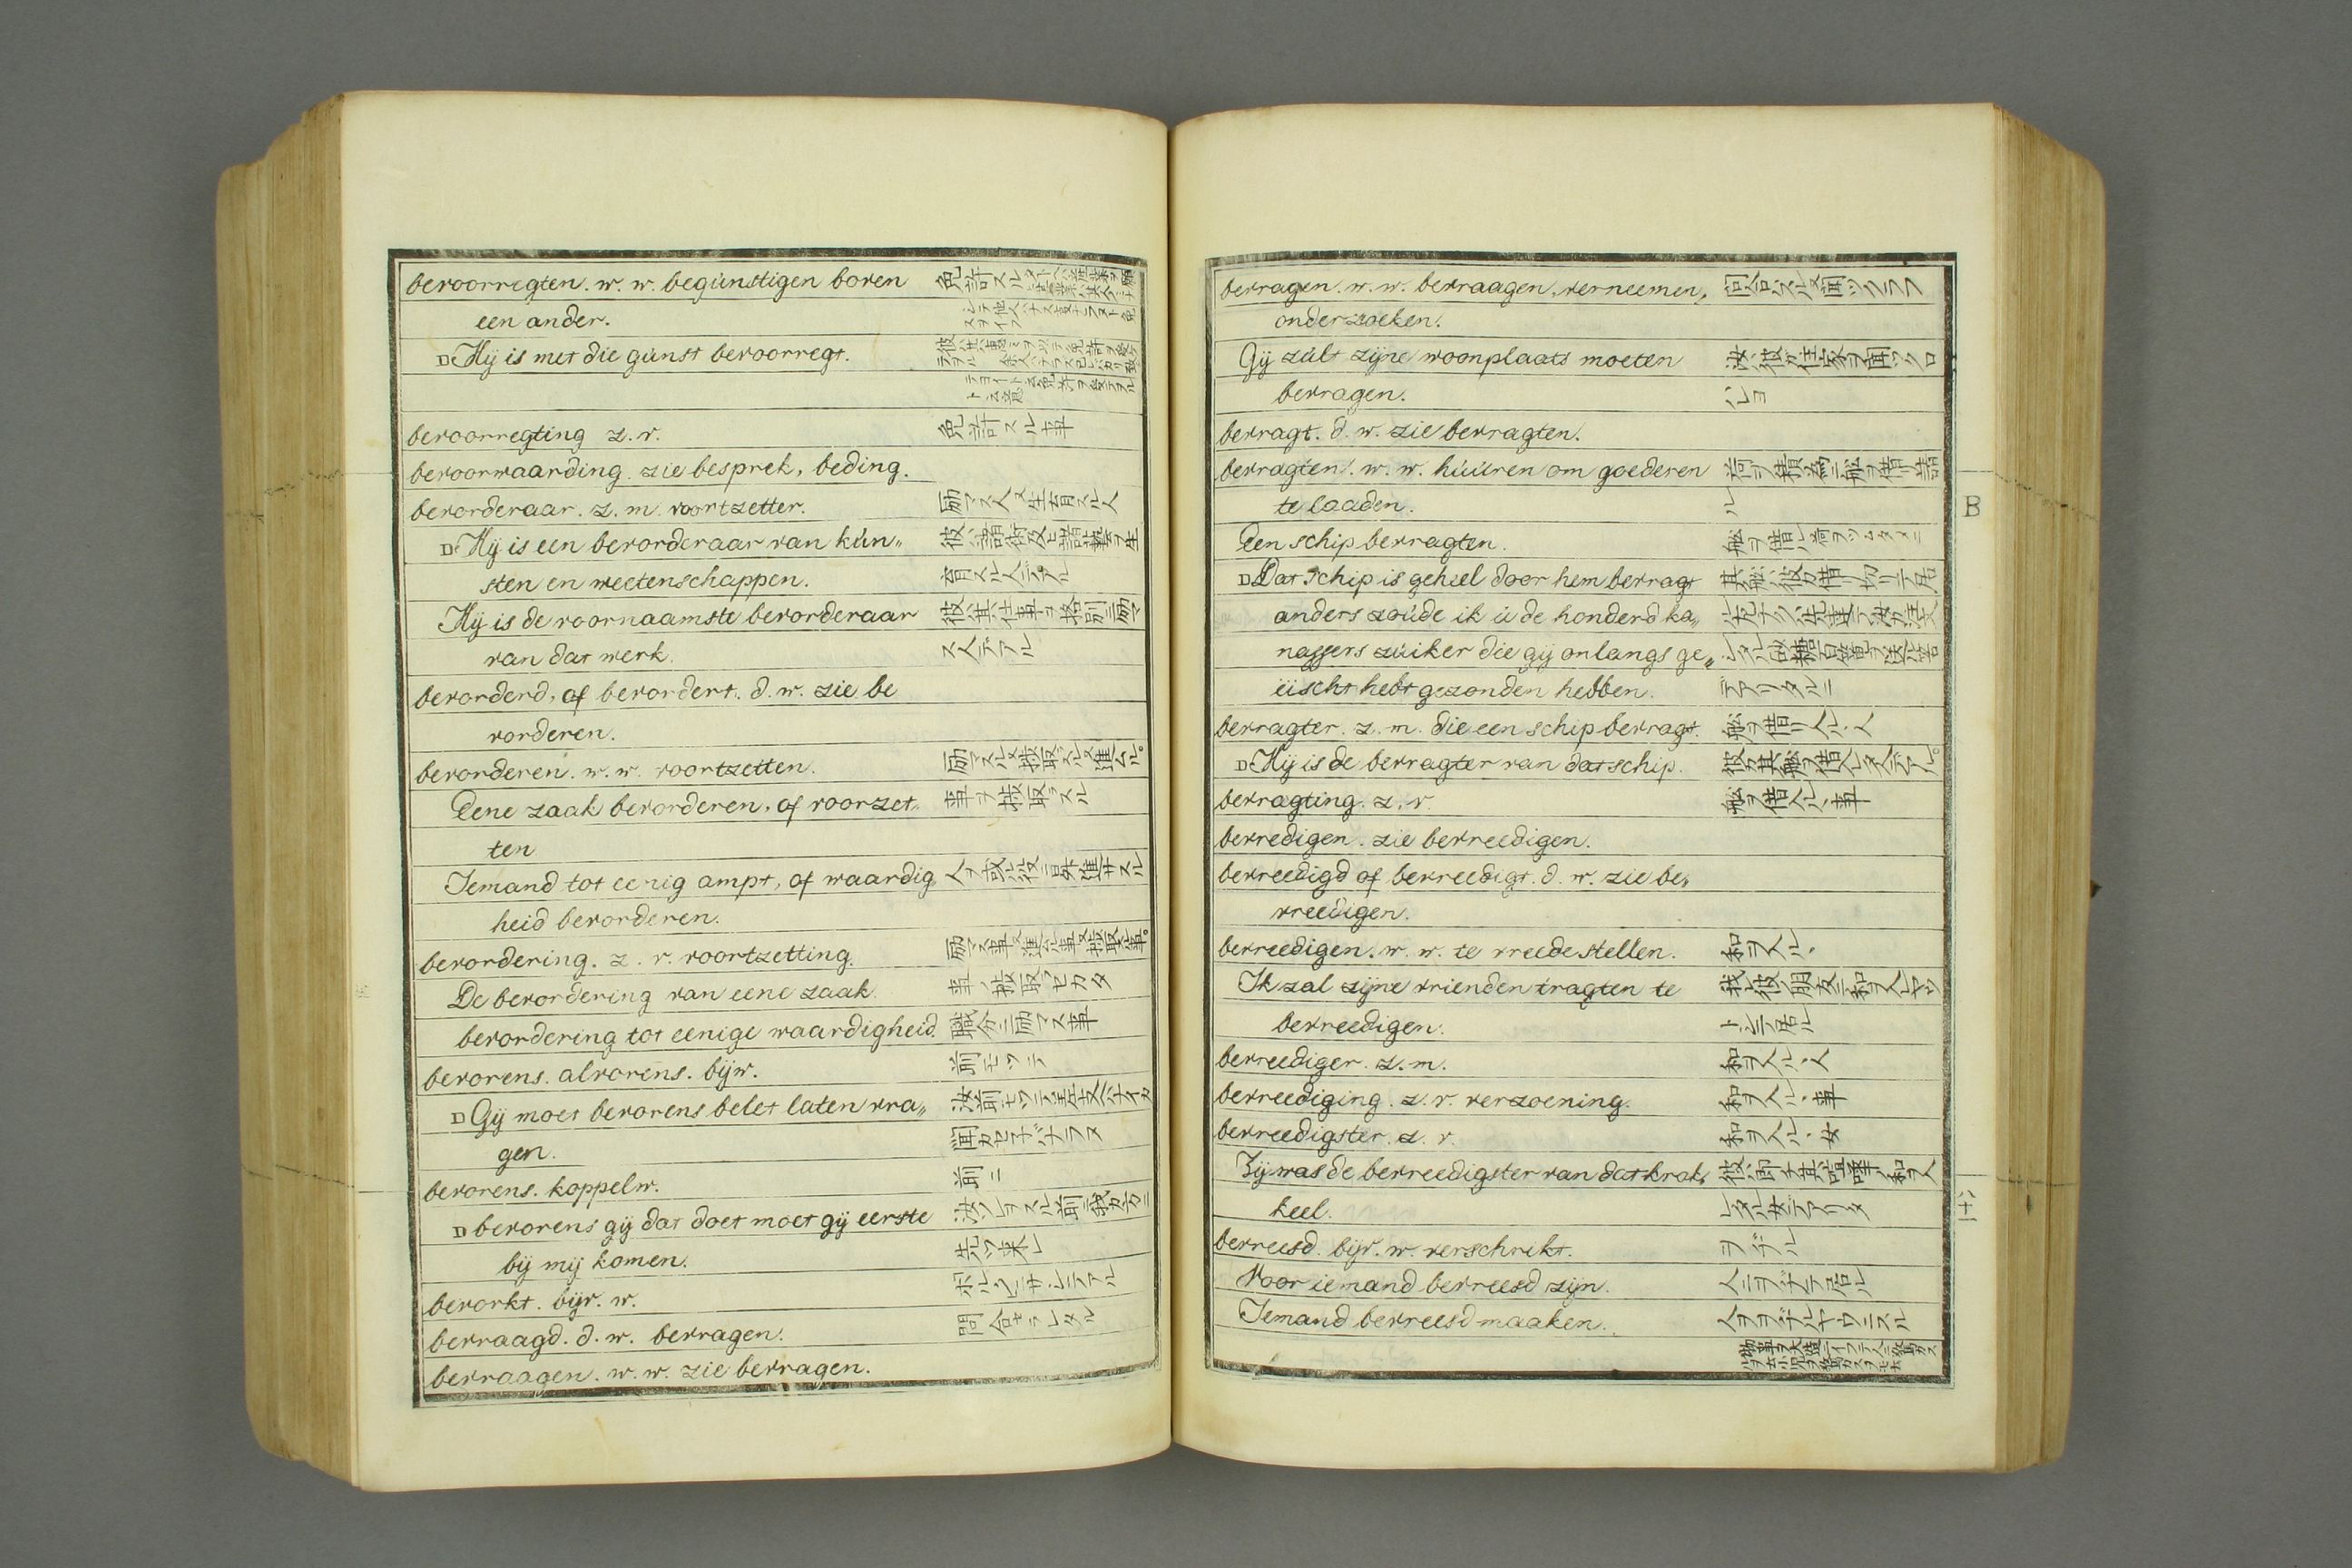 bevoorregten. w. w. begunstigen boven
een ander.
D Hij is met die gunst bevoorregt.
bevoorregting z. v. 免許スル事
bevoorwaarding. zie besprek, beding.
bevorderaar. z. m. voortzetter. 励マス人又生育スル人
D Hij is een bevorderaar van kun„ 彼ハ諸術及ヒ諸藝ヲ生
sten en weetenschappen. 育スル人デアル
Hij is de voornaamste bevorderaar 彼ハ其仕事ヲ格別ニ励マ
van dat werk. ス人デアル
bevorderd, of bevordert. d. w. zie be
vorderen.
bevorderen. w. w. voortzetten.
Eene zaak bevorderen, of voorzet„
ten
Iemand tot eenig ampt, of waardig„
heid bevorderen.
bevordering. z. v. voortzetting.
De bevordering van eene zaak.
bevordering tot eenige waardigheid. 職分ニ励マス事
bevorens. alvorens. bijw. 前モツテ
D Gij moet bevorens belet laten vra„
gen. 聞カセネバナラヌ
bevorens. koppelw. 前ニ
D bevorens gij dat doet moet gij eerste 汝ソレヲスル前ニ我カ方ニ
bij mij komen. 先ツ来レ
bevorkt. bijv. w.
bevraagd. d. w. bevragen. 問合セラレタル
bevraagen. w. w. zie bevragen.
bevragen. w. w. bevraagen, verneemen, 問合スル又聞ツクラフ
onderzoeken.
Gij zult zijne woonplaats moeten 汝ハ彼カ住家ヲ聞ツクロ
bevragen. ハレヨ
bevragt. d. w. zie bevragten.
bevragten. w. w. huuren om goederen 荷ヲ積ム為ニ舩ヲ借リ請
te laaden. ル
Een schip bevragten. 舩ヲ借ル荷ヲツムタメニ
D Dat schip is geheel door hem bevragt 其舩ハ彼カ借リ切リテ居
anders zoude ik u de honderd ka„
nassers zuiker die gij onlangs ge„
eischt hebt gezonden hebben. デアリタルニ
bevragter. z. m. die een schip bevragt. 舩ヲ借リ入ル、人
D Hij is de bevragter van dat schip. 彼カ其舩ヲ借入レタ人デアル。
bevragting. z. v. 舩ヲ借入ル、事
bevredigen. zie bevreedigen.
bevreedigd of bevreedigt. d. w. zie be„
vreedigen.
bevreedigen. w. w. te vreede stellen. 和ヲ入ル、
Ik zal zijne vrienden tragten te
bevreedigen. トシテ居ル
bevreediger. z. m. 和ヲ入ル、人
bevreediging. z. v. verzoening. 和ヲ入ル、事
bevreedigster. z. v. 和ヲ入ル、女
Zij was de bevreedigster van dat krak„ 彼ハ即チ其喧嘩ノ和ヲ入
keel. レタル女デアリタ
bevreesd. bijv. w. verschrikt. ヲヂル
Voor iemand bevreesd zijn. 人ニヲヂテ居ル
Iemand bevreesd maaken. 人ヲヲヂルヤウニスル
B